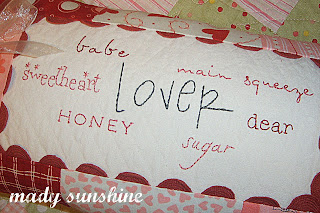 babe
main squeeze
sweetheart
lover
HONEY
dear
sugar
mady sunshine